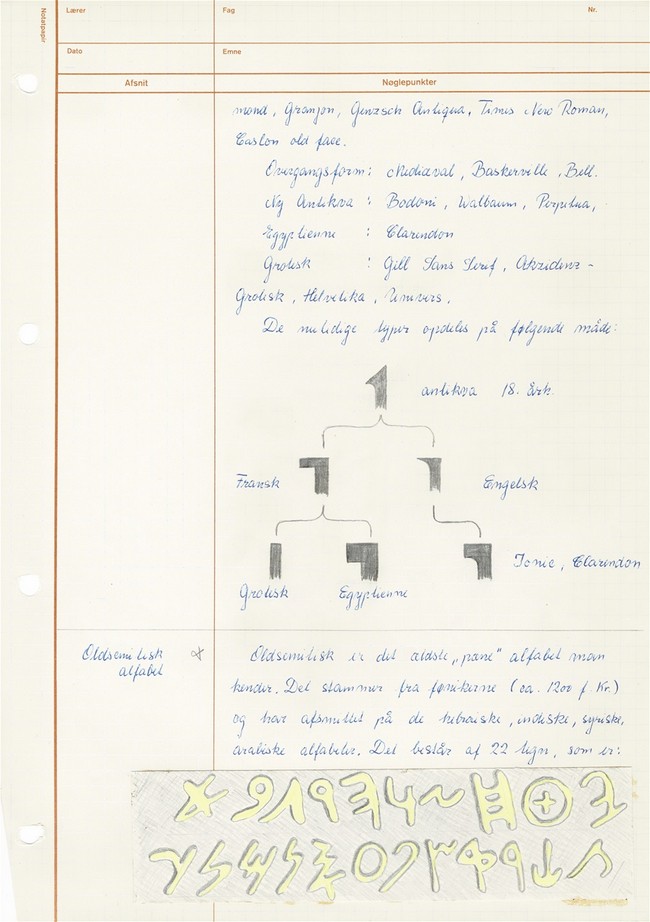 Notatpapir
Lærer Fag Nr.
Dato Emne
Afsnit Nøglepunkter
mond, Granjon, Genzsch Antiqua, Times New Roman,
Caslon old face.
Overgangsform: Mediæval, Baskerville, Bell.
Ny Antikva : Bodoni, Walbaum, Perpetua,
Egyptienne : Clarendon
Grotesk : Gill Sans Serif, Akzidenz-
Grotesk, Helvetika, Univers.
De nutidige typer opdeles på følgende måde:
antikva 18. årh.
Fransk Engelsk
Ionic, Clarendon
Grotesk Egyptienne
Oldsemitisk
alfabet
Oldsemitisk er det ældste „pæne" alfabet man
kender. Det stammer fra fønikerne (ca. 1200 f. Kr.)
og har afsmittet på de hebraiske, indiske, syriske,
arabiske alfabeter. Det består af 22 tegn, som er: